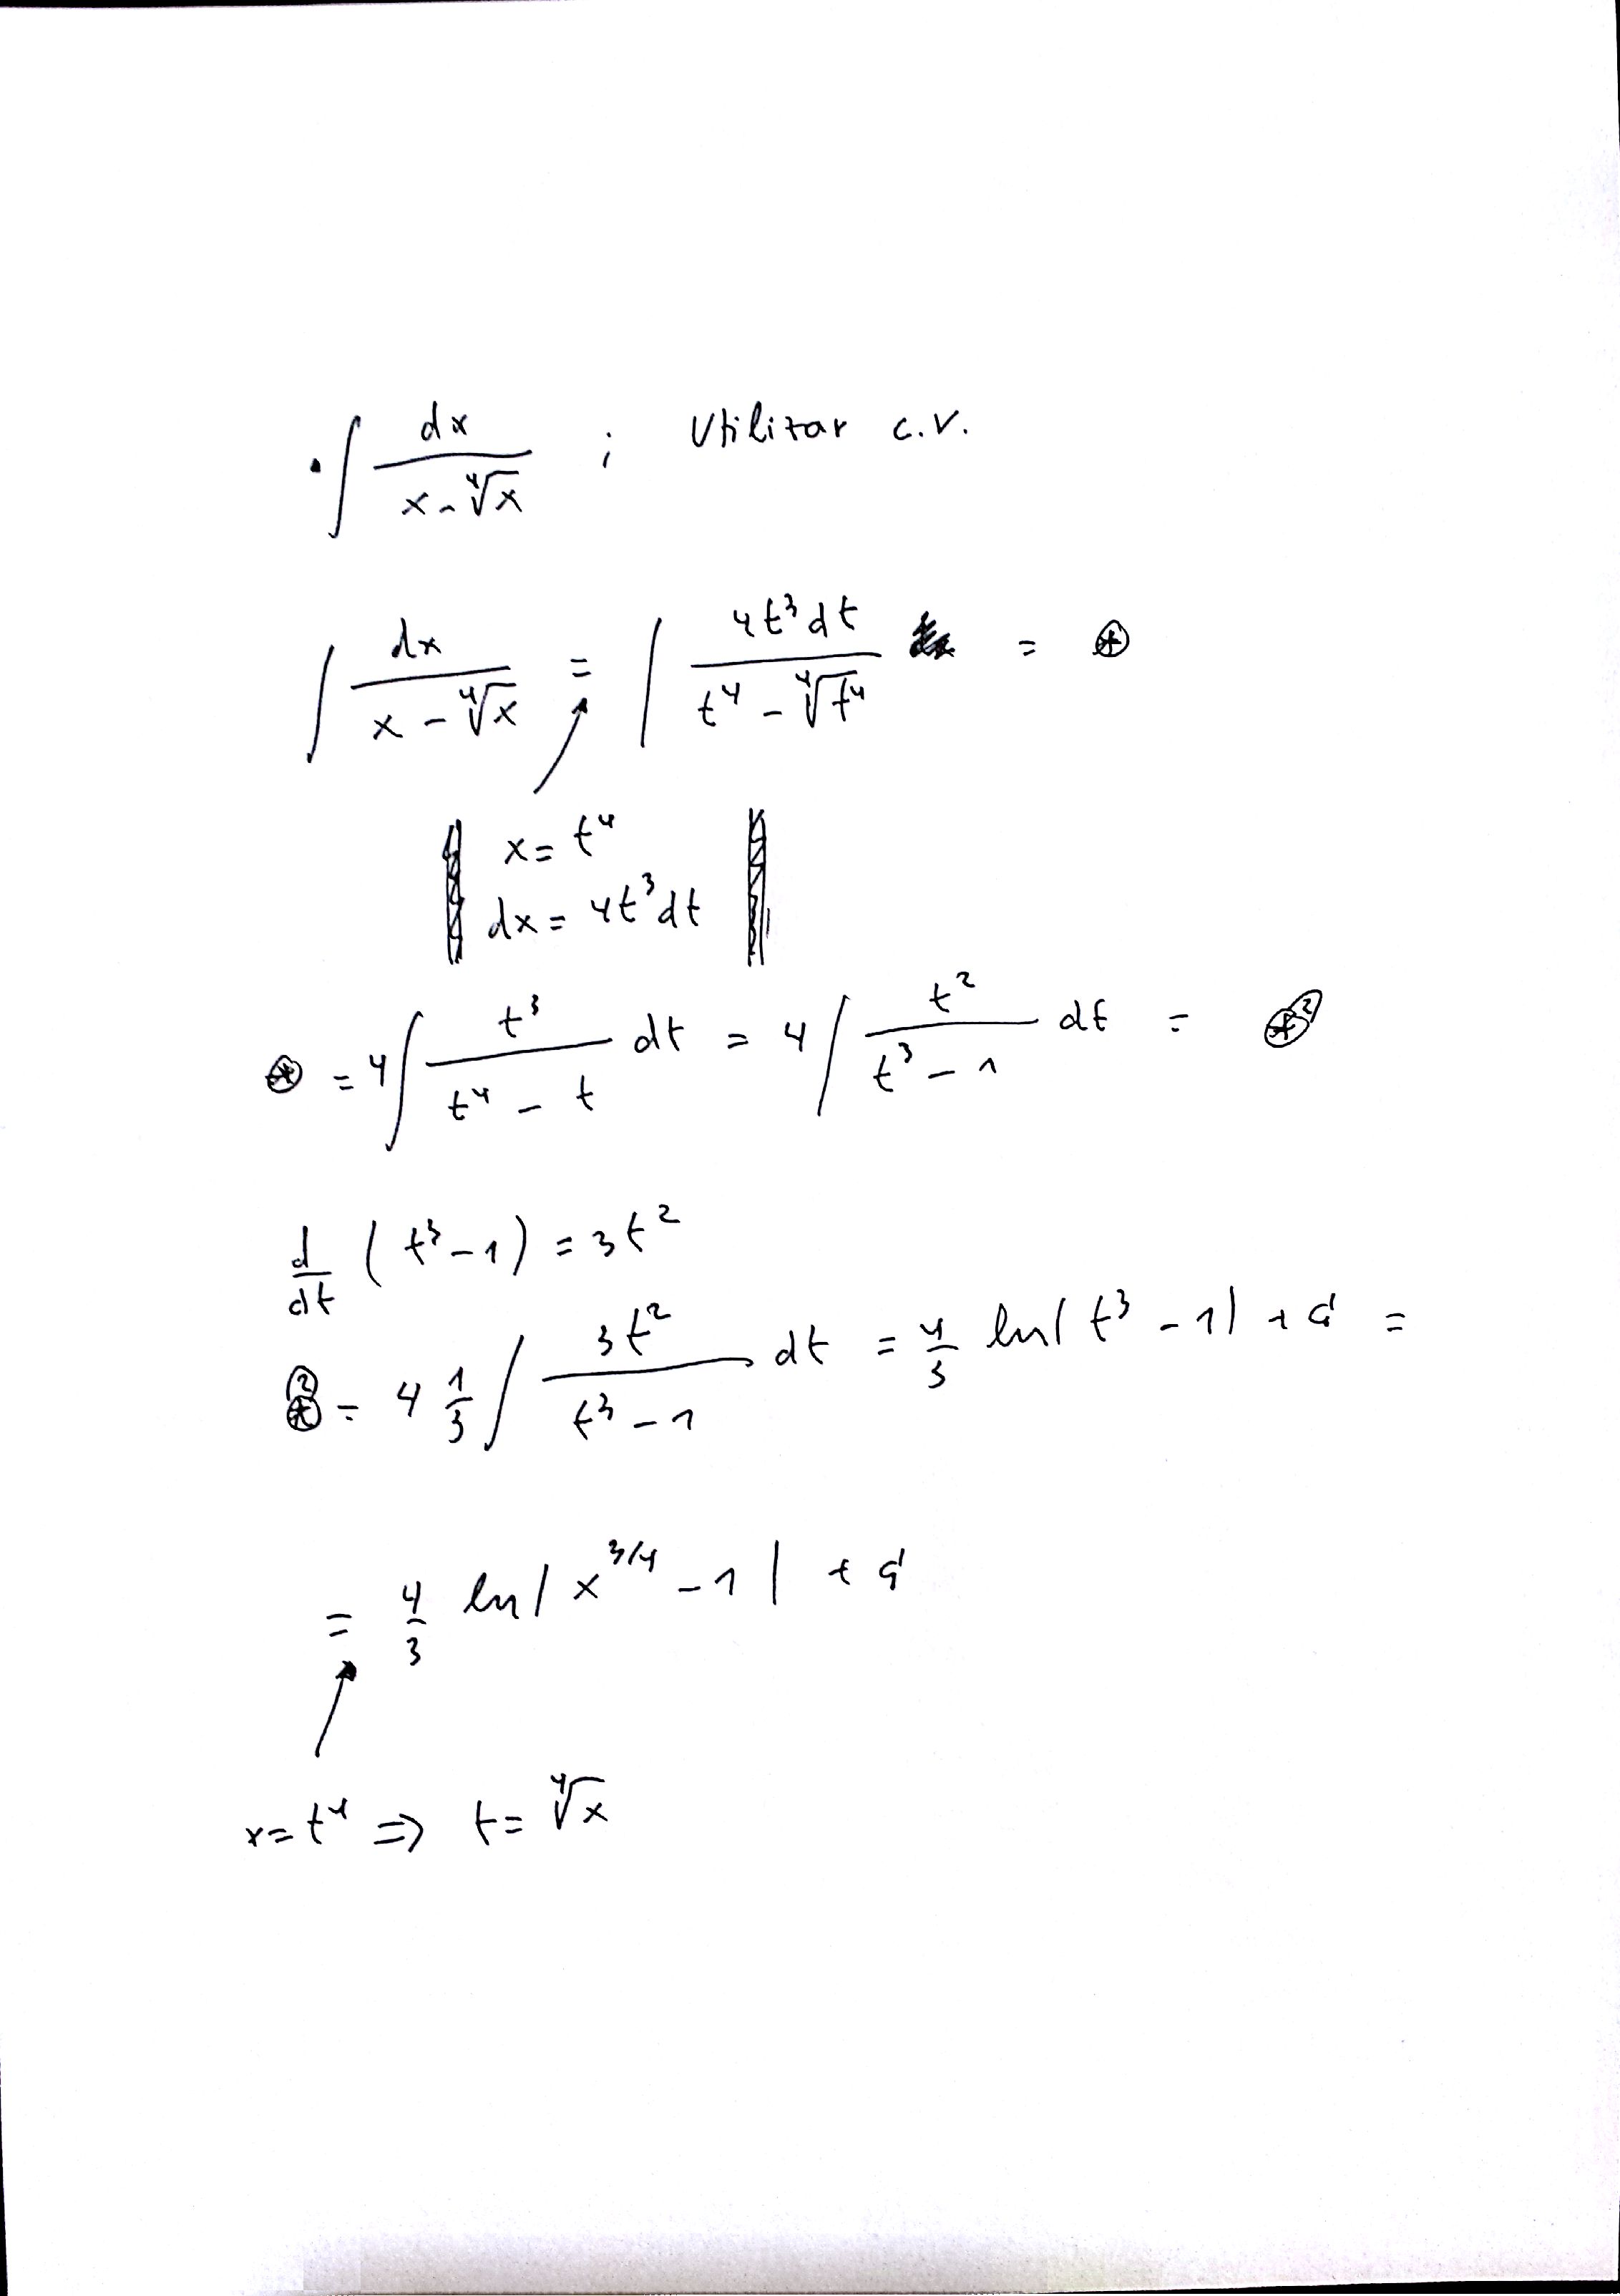 · ∫ dx / (x - ⁴√x) ; Utilizar c.v.
∫ dx / (x - ⁴√x) = ∫ 4t³dt / (t⁴ - ⁴√t⁴) = ⊛
x = t⁴
dx = 4t³dt
⊛ = 4 ∫ t³ / (t⁴ - t) dt = 4 ∫ t² / (t³ - 1) dt = ⊛²
d/dt (t³ - 1) = 3t²
⊛² = 4 1/3 ∫ 3t² / (t³ - 1) dt = 4/3 ln|t³ - 1| + C =
= 4/3 ln|x^(3/4) - 1| + C
x = t⁴ ⇒ t = ⁴√x